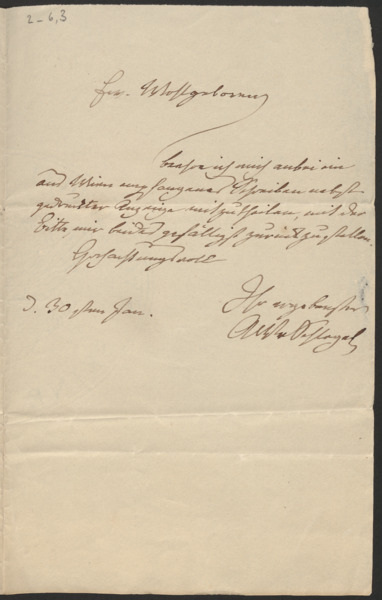 2-6,3
Ew. Wohlgeboren
beehre ich mich anbei ein
aus Wien empfangenes Schreiben nebst
gedruckter Anzeige mitzutheilen, mit der
Bitte, mir beides gefälligst zurückzustellen.
Hochachtungsvoll
Ihr ergebenster
AWvSchlegel
d. 30sten Jan.